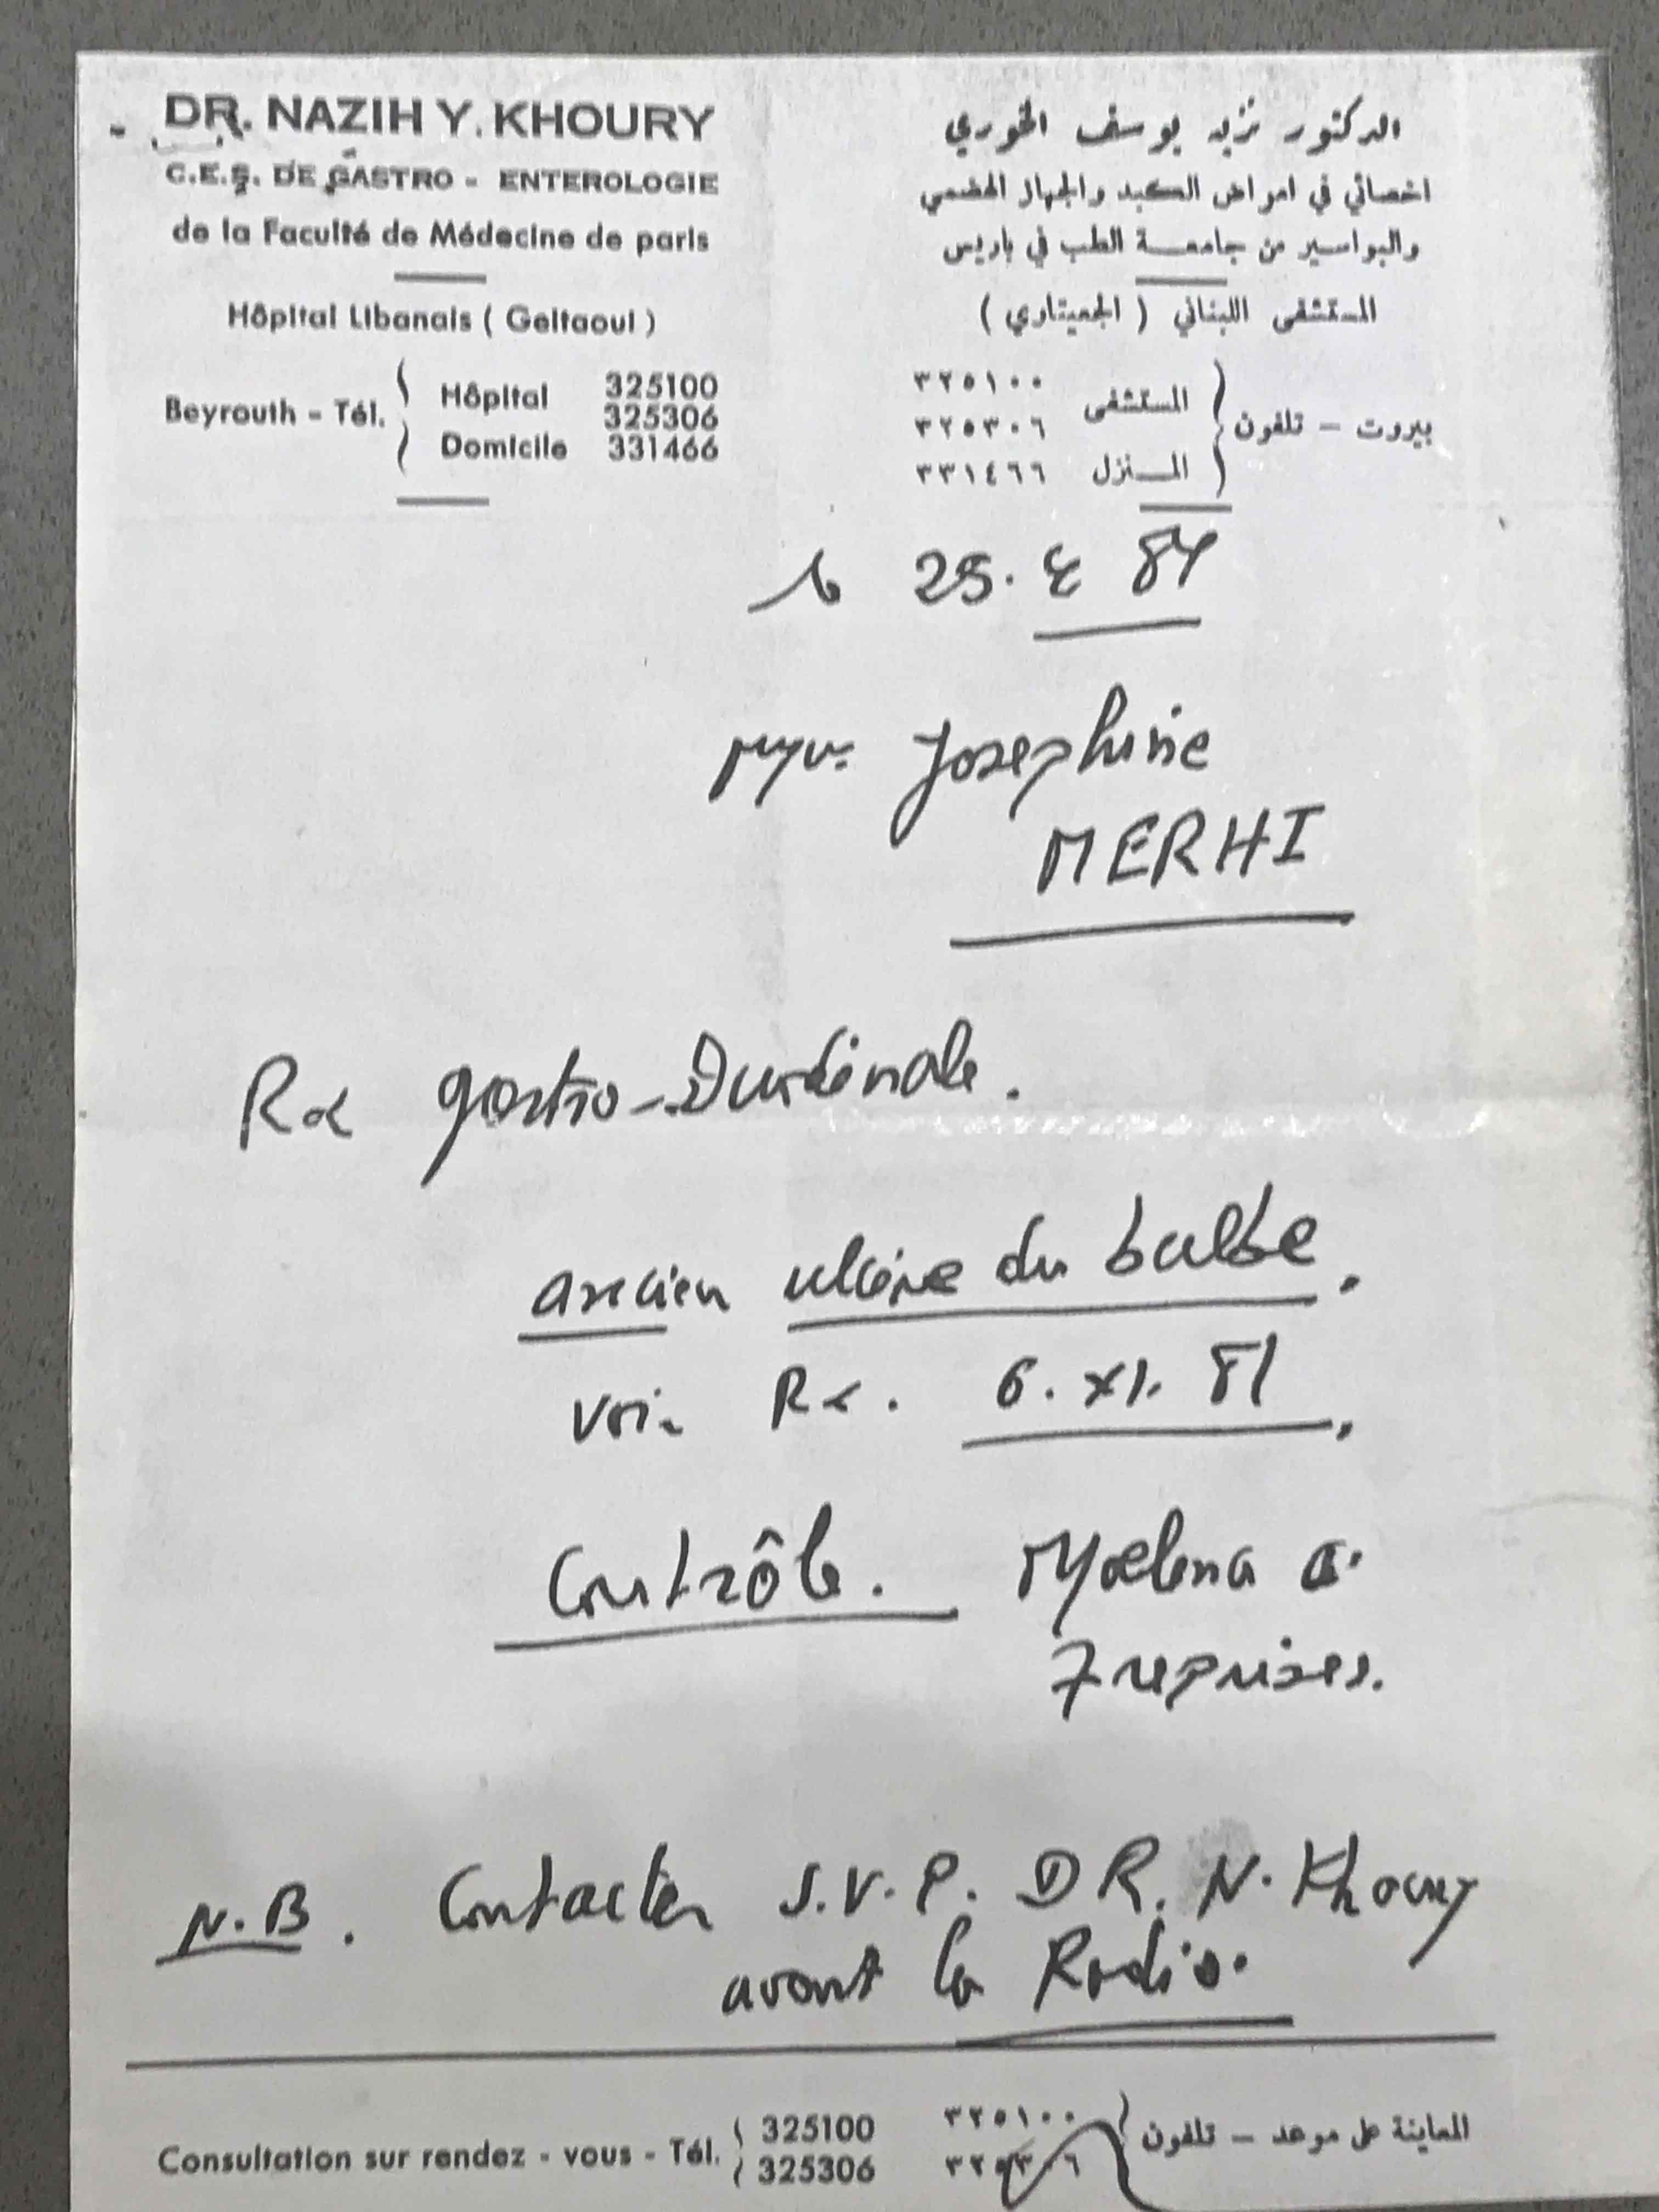 DR. NAZIH Y. KHOURY
C.E.S. DE GASTRO - ENTEROLOGIE
de la Faculté de Médecine de paris
Hôpital Libanais ( Geitaoui )
Beyrouth - Tél.
Hôpital 325100
325306
Domicile 331466
الدكتور نزيه يوسف الخوري
اخصائي في امراض الكبد والجهاز الهضمي
والبواسير من جامعة الطب في باريس
المستشفى اللبناني ( الجعيتاوي )
بيروت - تلفون
المستشفى ٣٢٥١٠٠
٣٢٥٣٠٦
المنزل ٣٣١٤٦٦
le 25. 84
Josephine
MERHI
gastro-Duodénale.
ancien ulcère du bulbe.
voir 6. XI. 81.
Contrôle. Maelena a
7 reprises.
N.B. Contacter S.V.P. DR. N. Khoury
avant la Radio.
Consultation sur rendez - vous - Tél. 325100
325306
المعاينة على موعد - تلفون ٣٢٥١٠٠
٣٢٥٣٠٦